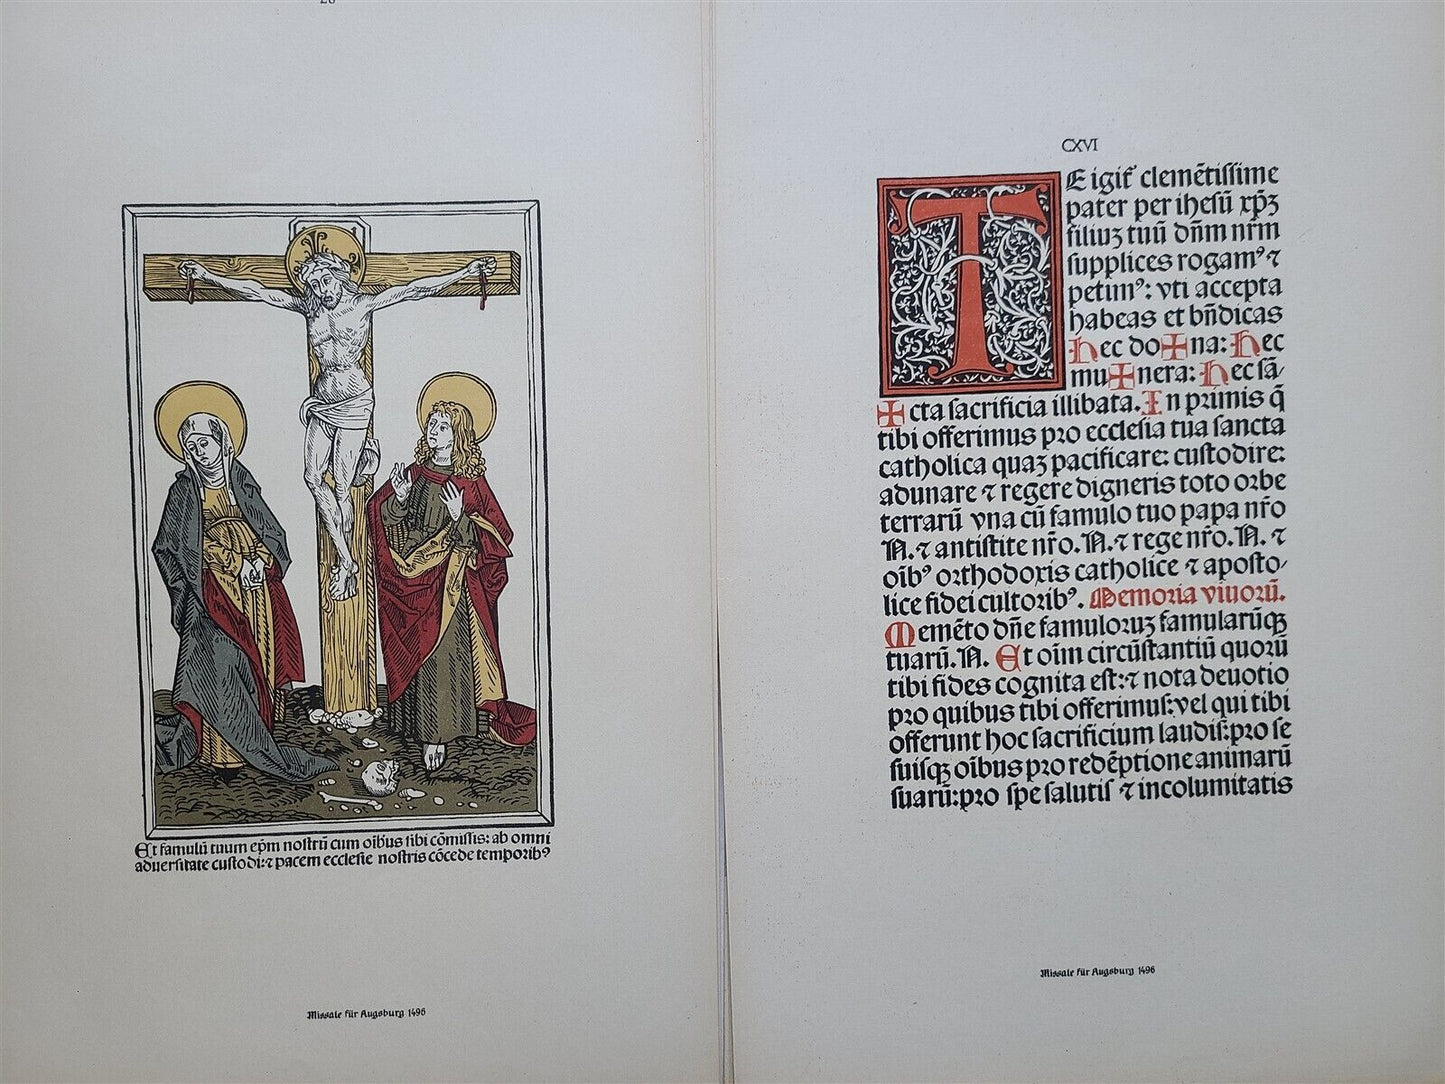 Et famulū tuum ep̄m nostrū cum oīb'us sibi cōmissis: ab omni
adversitate custodi: ⁊ pacem ecclesie nostris cōcede temporibꝰ
Missale für Augsburg 1496
CXVI
TE igit᷑ clemētissime
pater per ihesū xp̄ꝫ
filiuꝫ tuū dn̄m nr̄m
supplices rogamꝰ ⁊
petimꝰ: vti accepta
habeas et bn̄dicas
Hec do✠na: Hec
mu✠nera: Hec sā/
✠cta sacrificia illibata. In primis q̄
tibi offerimus pro ecclesia tua sancta
catholica quaꝫ pacificare: custodire:
adunare ⁊ regere digneris toto orbe
terrarū vna cū famulo tuo papa nr̄o
N. ⁊ antistite nr̄o. N. ⁊ rege nr̄o. N. ⁊
oībꝰ orthodoxis catholice ⁊ aposto/
lice fidei cultoribꝰ. Memoria viuorū.
Memēto dn̄e famuloruꝫ famularūqꝫ
tuarū. N. Et oīm circūstantiū quorū
tibi fides cognita est: ⁊ nota deuotio
pro quibus tibi offerimus: vel qui tibi
offerunt hoc sacrificium laudis: pro se
suisqꝫ oībus pro redēptione animarū
suarū: pro spe salutis ⁊ incolumitatis
Missale für Augsburg 1496